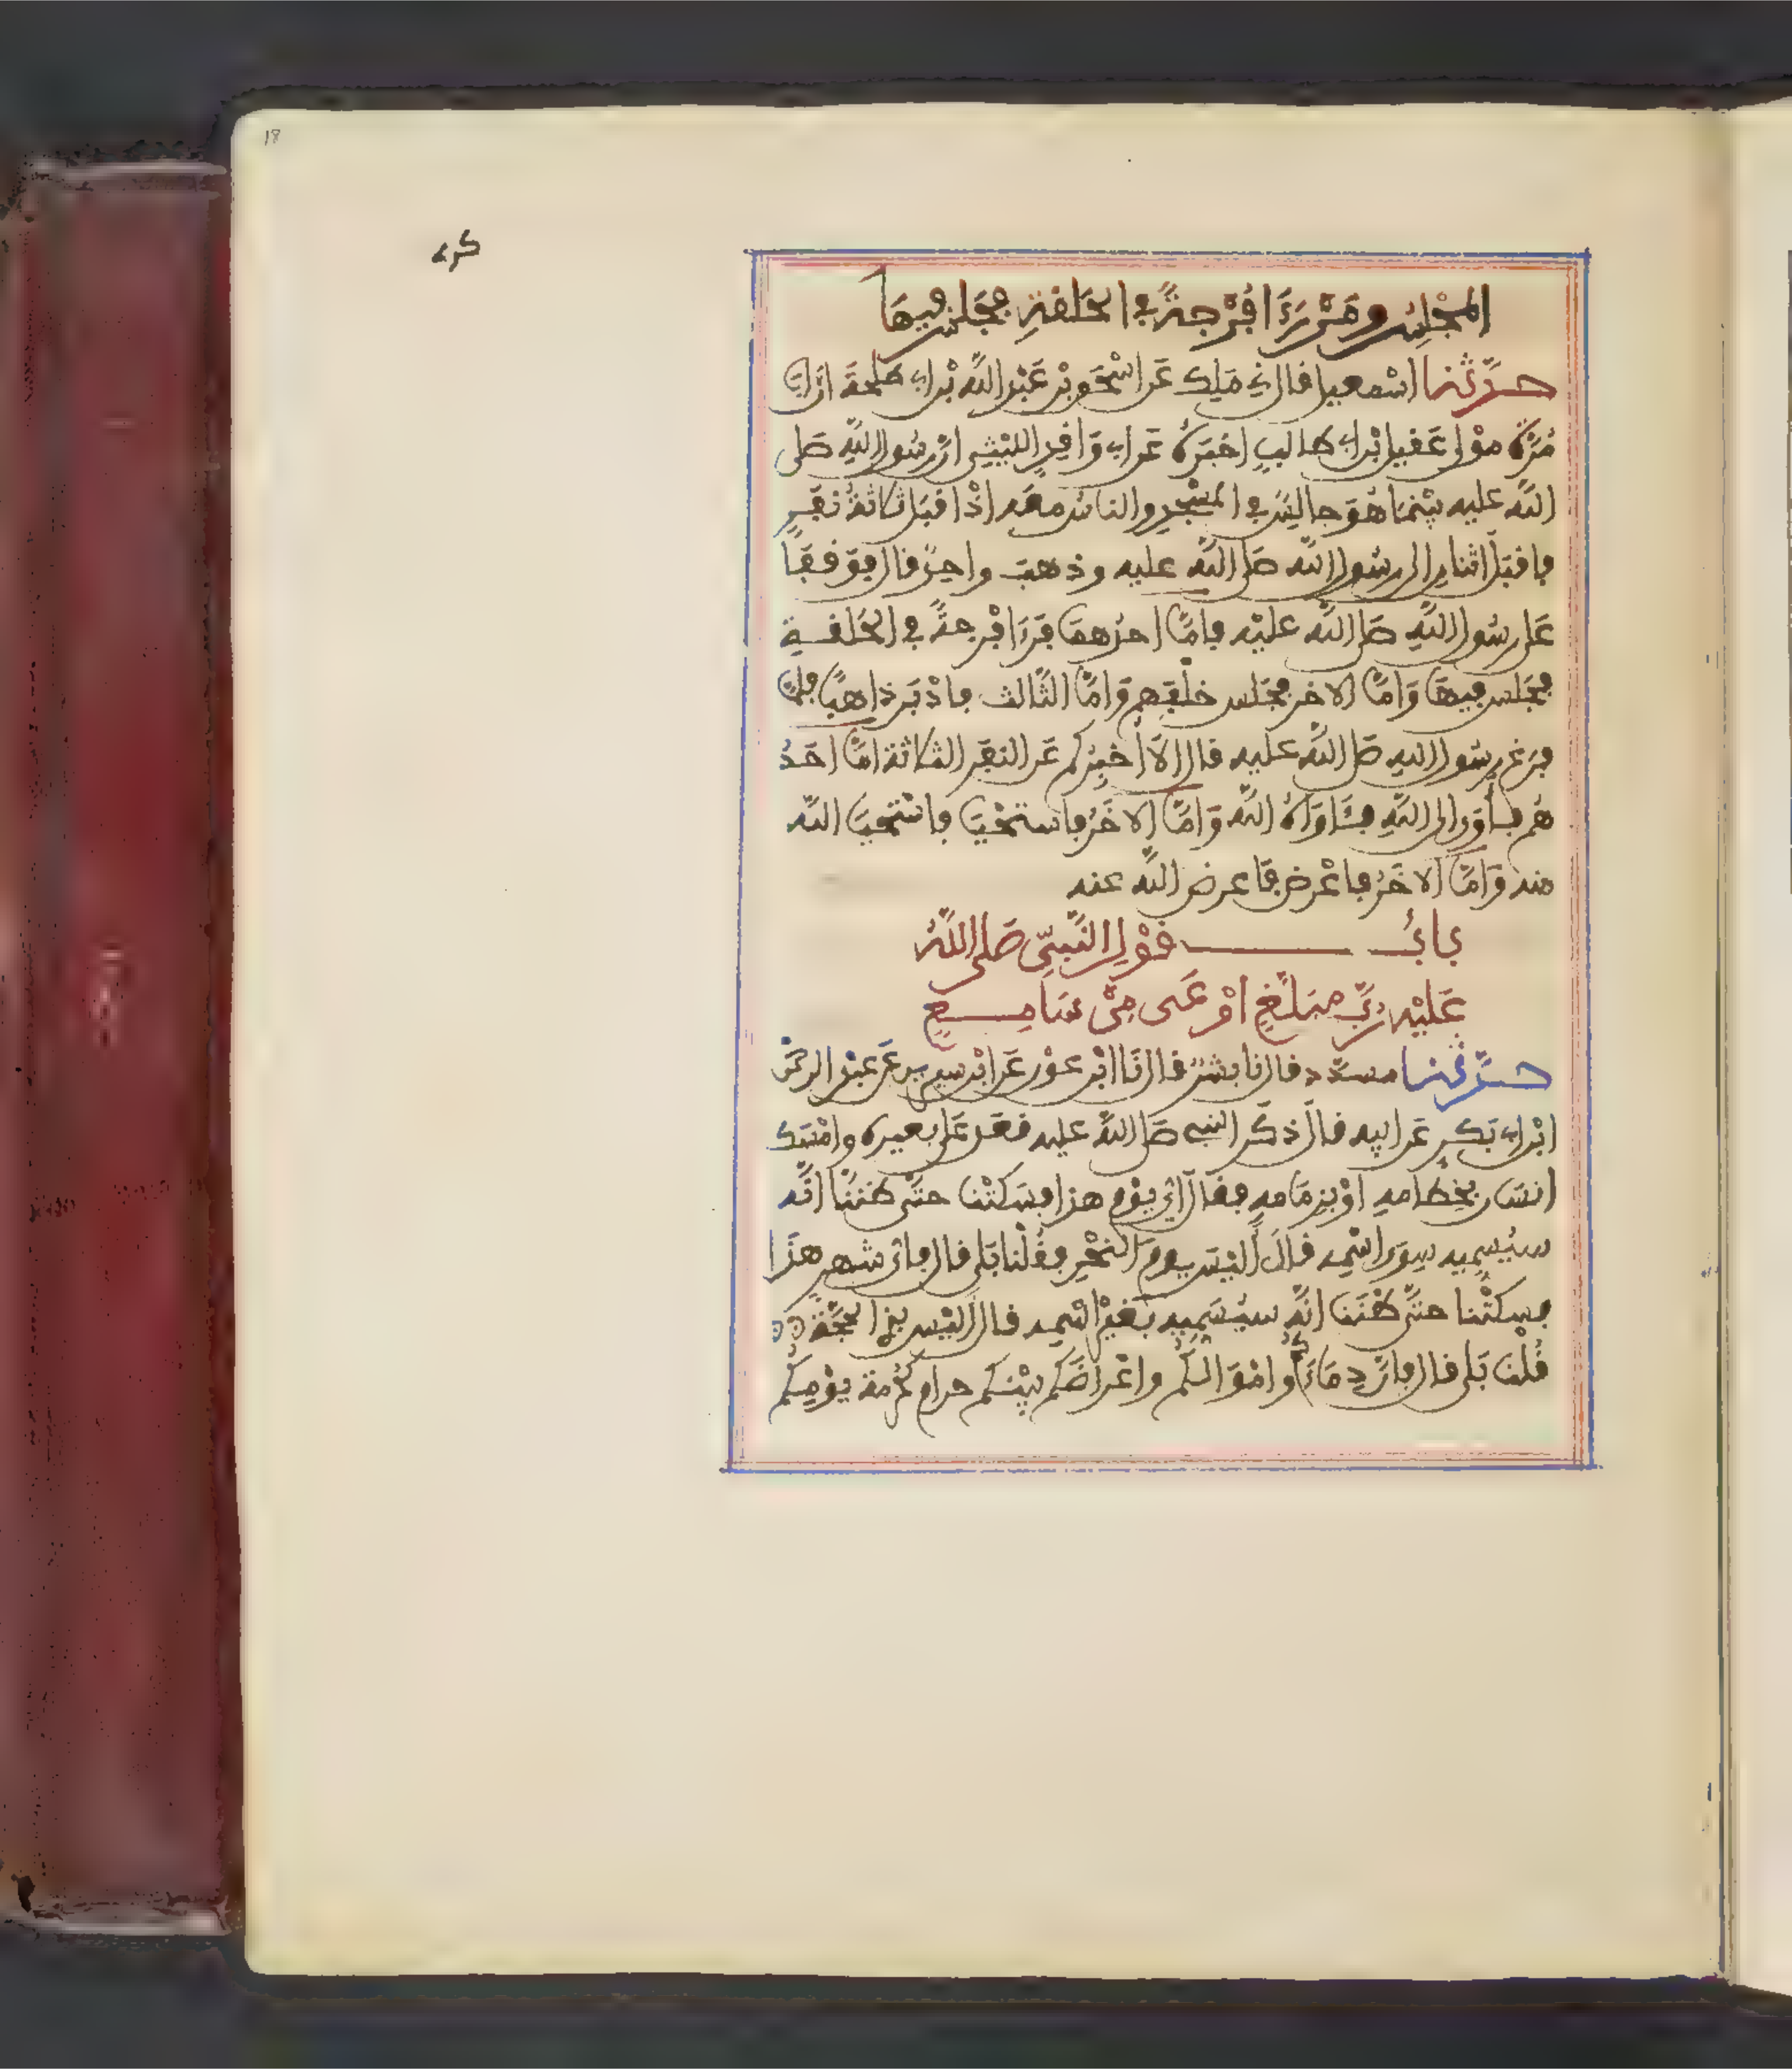 18
المجْلِسُ ومَنْ رَءَا فُرْجةً في الحَلقةِ فجَلسَ فيهَا
حدَّثنا اسْمعيل قال ني مَلِك عَن اسْحٰق بْن عَبْد اللَّه بْن ابي طلحَة ان ابا
مُرّة موْلى عَقيل ابْن ابي طالبٍ اخبَرَهُ عَن ابي وَاقدٍ الليْثي انّ رسُول اللَّهِ صَلى
اللَّه عليه بيْنمَا هُوَ جالِسٌ في المسْجدِ والناسُ معَه اذْ اقبَل ثلاثةُ نَفَرٍ
فاقبَل اثنانِ الى رسُول اللَّه صَلى اللَّه عليه وذهبَ واحِدٌ قال فوَقفَا
عَلى رسُول اللَّهِ صَلى اللَّه عليْه فامّا احدُهمَا فَرَءَا فُرْجةً في الحَلقةِ
فجَلس فيهَا وَامّا الاخر فجَلس خلْفَهم وَامّا الثّالث فادْبَر ذاهبًا فلمّا
فرَغ رسُول اللهِ صَلى اللَّه عليه قال الَا اُخبِرُكم عَن النفَر الثلاثة امّا احَدُ
هُم فأوَى الى اللَّهِ فئَاوَاهُ اللَّه وَامّا الاخَرُ فاستحْيَا فاسْتحْيَا اللَّه
منه وَامّا الاخَرُ فاعْرض فَاعرض اللَّه عنه
بابُ قوْلِ النَّبيّ صَلى اللَّهُ
عَليْه رُبَّ مبَلَّغٍ اوْعَى مِنْ سَامِعٍ
حدَّثنا مسدّد قال نا بشْرٌ قال نَا ابْن عوْن عَن ابْن سيرين عَن عبْد الرحْمٰن
ابْن ابي بَكرٍ عَن ابيه قالَ ذكَر النبي صَلى اللَّه عليه قعَد عَلى بعيره وامْسَك
انسَان بخِطامهِ اوْ بزِمَامهِ فقالَ ايّ يوْم هذا فسَكتْنا حتّى ظننّا انّه
سيُسمِيه سِوَى اسْمِه قالَ أليْسَ يومَ النحْرِ فقُلْنا بَلى قال فايّ شهرٍ هذَا
فسكتْنا حتّى ظنَنا انّه سيُسَمِيه بغيْرِ اسْمِه قال أليْس بذِي الحجّة
قُلْنا بَلى قال فانّ دِمَاءَكُم وامْوَالكُم واعْراضَكم بيْنكم حرام كحُرمة يوْمِكُم